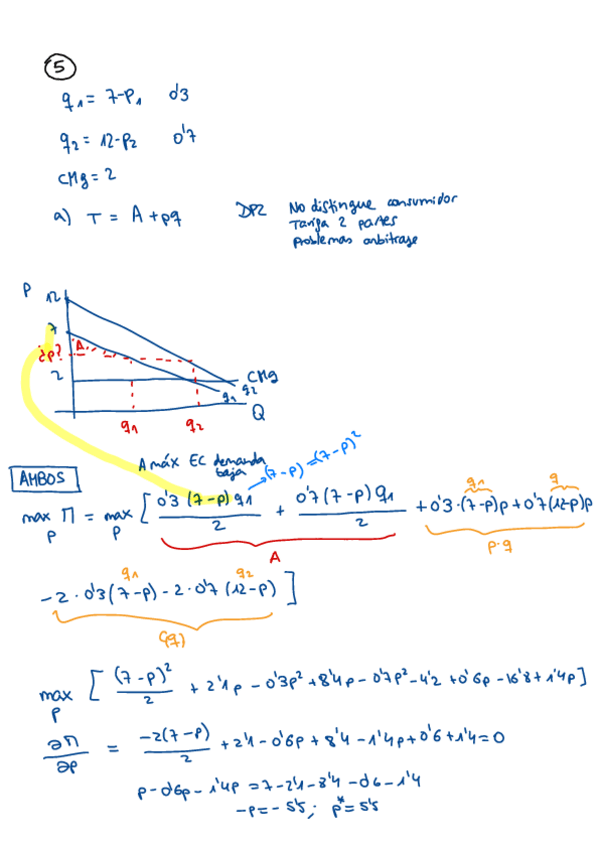 5
q1 = 7-P1 0'3
q2 = 12-P2 0'7
CMg = 2
a) T = A + pq DP2 No distingue consumidor
Tarifa 2 partes
Problemas arbitraje
P
12
7
A
¿p?
2
CMg
q1 q2
Q
q1 q2
A máx EC demanda baja
(7-p) = (7-p)²
AMBOS
max Π = max [ 0'3 (7-p) q1 / 2 + 0'7 (7-p) q1 / 2 + 0'3·(7-p)p + 0'7(12-p)p
p p
q1 q
A
p·q
q1 q2
-2·0'3(7-p) - 2·0'7 (12-p) ]
C(q)
max [ (7-p)² / 2 + 2'1p - 0'3p² + 8'4p - 0'7p² - 4'2 + 0'6p - 16'8 + 1'4p ]
p
∂Π / ∂p = -2(7-p) / 2 + 2'1 - 0'6p + 8'4 - 1'4p + 0'6 + 1'4 = 0
p - 0'6p - 1'4p = 7 - 2'1 - 8'4 - 0'6 - 1'4
-p = -5'5 ; p* = 5'5